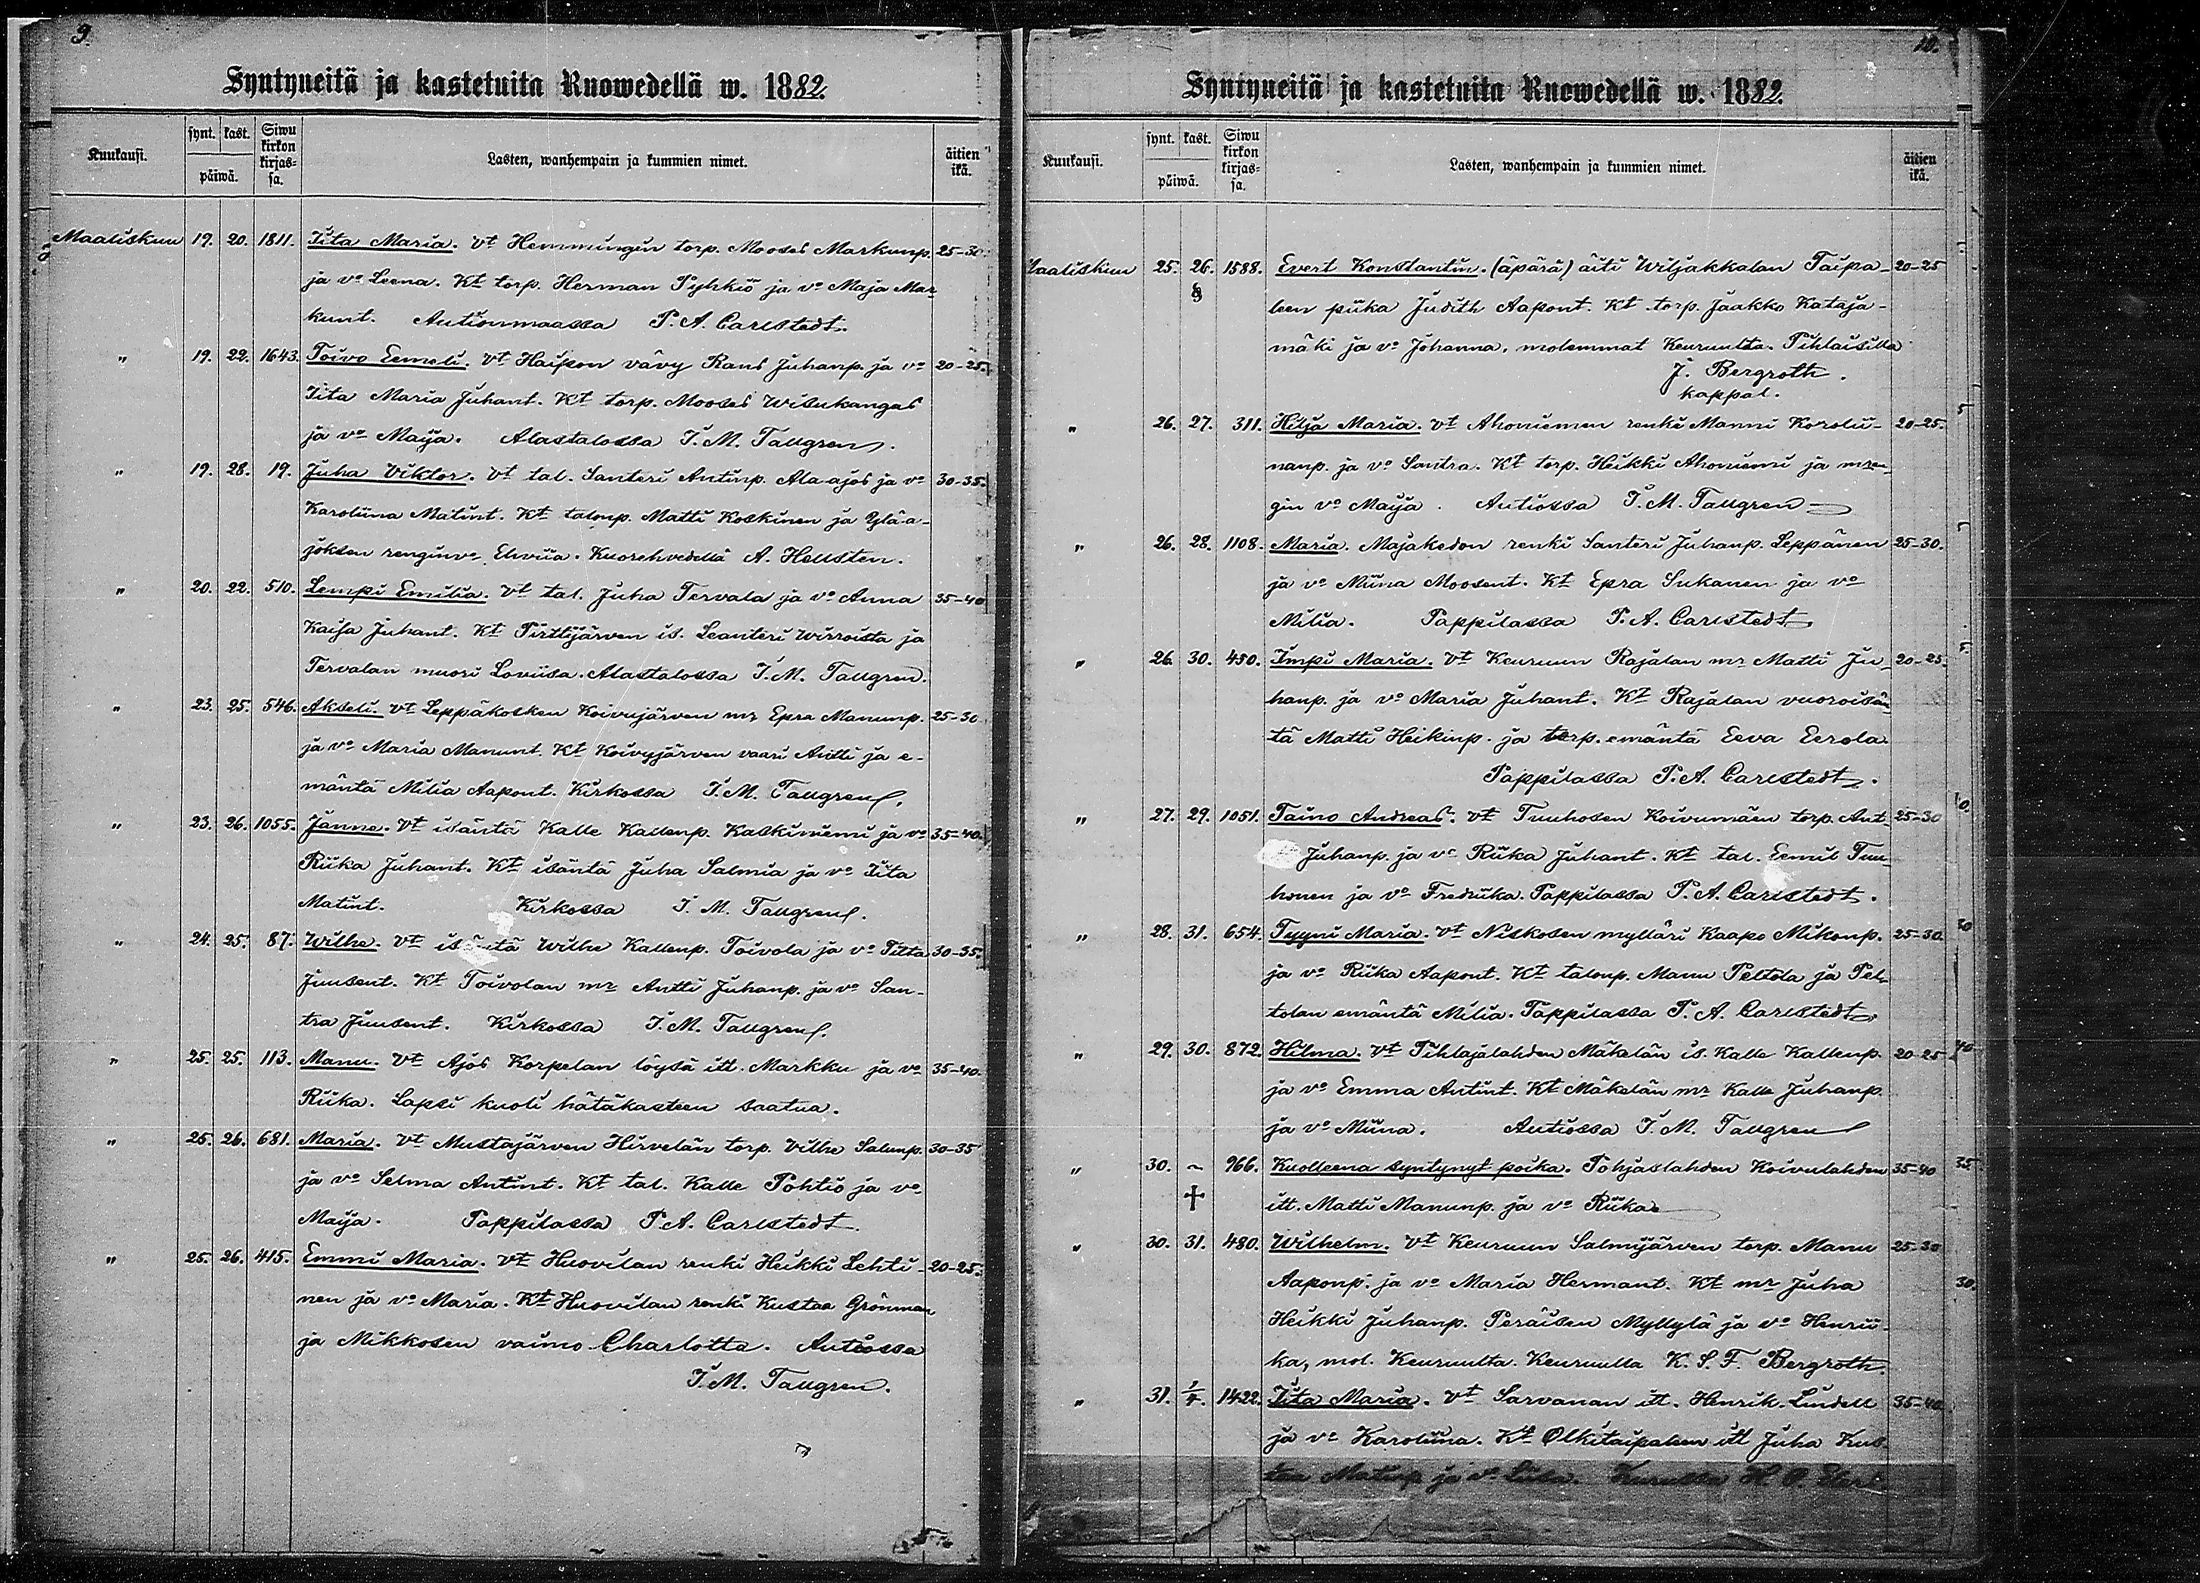 9.
Syntyneitä ja kastetuita Ruowedellä w. 1882.
Kuukausi. synt. kast. päiwä. Siwu kirkon kirjas-sa. Lasten, wanhempain ja kummien nimet. äitien ikä.
Maaliskuu 19. 20. 1811. Iita Maria. vt Hemmingin torp. Mooses Markunp. 25-30.
ja vo Leena. Kt torp. Herman Pyhkiö ja vo Maja Mar-
kunt. Autionmaassa P. A. Carlstedt.
" 19. 22. 1643. Toivo Eemeli. vt Haipon vävy Rans Juhanp. ja vo 20-25.
Iita Maria Juhant. Kt torp. Mooses Wisukangas
ja vo Maija. Alastalossa I. M. Tallgren.
" 19. 28. 19. Juha Viktor. vt tal. Santeri Antinp. Ala-ajos ja vo 30-35.
Karoliina Matint. Kt talonp. Matti Koskinen ja Ylä-a-
joksen renginvo Elviia. Kuorehvedellä A. Hellsten.
" 20. 22. 510. Lempi Emilia. vt tal. Juha Tervala ja vo Anna 35-40
Kaisa Juhant. Kt Pirttijärven is. Leanteri Wirroista ja
Tervalan muori Loviisa. Alastalossa I. M. Tallgren.
" 23. 25. 546. Akseli. vt Leppäkosken Koivujärven mr Epra Manunp. 25-30
ja vo Maria Manunt. Kt Koivyjärven vaari Antti ja e-
mäntä Milia Aapont. Kirkossa I. M. Tallgren.
" 23. 26. 1055. Janne. vt isäntä Kalle Kallenp. Kaskiniemi ja vo 35-40.
Riika Juhant. Kt isäntä Juha Salmia ja vo Iita
Matint. Kirkossa I. M. Tallgren.
" 24. 25. 87. Wilhe. vt isäntä Wilhe Kallenp. Toivola ja vo Iita 30-35.
Juusent. Kt Toivolan mr Antti Juhanp. ja vo San-
tra Juusent. Kirkossa I. M. Tallgren.
" 25. 25. 113. Manu. vt Ajos Korpelan löysä itt. Markku ja vo 35-40.
Riika. Lapsi kuoli hätäkasteen saatua.
" 25. 26. 681. Maria. vt Mustajärven Hirvelän torp. Vilhe Salunp. 30-35
ja vo Selma Antint. Kt tal. Kalle Pohtio ja vo
Maija. Pappilassa P. A. Carlstedt.
" 25. 26. 415. Emmi Maria. vt Huovilan renki Heikki Lehti- 20-25.
nen ja vo Maria. Kt Huovilan renki Kustaa Grönman
ja Mikkosen vaimo Charlotta. Autiossa
I. M. Tallgren.
10.
Syntyneitä ja kastetuita Ruowedellä w. 1882.
Kuukausi. synt. kast. päiwä. Siwu kirkon kirjas-sa. Lasten, wanhempain ja kummien nimet. äitien ikä.
Maaliskuu 25. 26. 1588. Evert Konstantin. (äpärä) äiti Wiljakkalan Taipa- 20-25
leen piika Judith Aapont. Kt torp. Jaakko Kataja-
mäki ja vo Johanna, molemmat Keuruulta. Pihlaisilla
J. Bergroth.
kappal.
" 26. 27. 311. Hilja Maria. vt Ahoniemen renki Manni Korolii- 20-25.
nanp. ja vo Santra. Kt torp. Heikki Ahoniemi ja mren-
gin vo Maija. Autiossa I. M. Tallgren
" 26. 28. 1108. Maria. Majakedon renki Santeri Juhanp. Leppänen 25-30.
ja vo Miina Moosent. Kt Epra Sukanen ja vo
Milia. Pappilassa P. A. Carlstedt
" 26. 30. 450. Impi Maria. vt Keuruun Rajalan mr Matti Ju- 20-25.
hanp. ja vo Maria Juhant. Kt Rajalan vuoroisän-
tä Matti Heikinp. ja torp. emäntä Eeva Eerola
Pappilassa P. A. Carlstedt.
" 27. 29. 1051. Taino Andreas. vt Tuuhosen Koivumäen torp. Ant- 25-30
Juhanp. ja vo Riika Juhant. Kt tal. Eemil Tuu-
honen ja vo Fredrika. Pappilassa P. A. Carlstedt.
" 28. 31. 654. Tyyni Maria. vt Niskosen mylläri Kaapo Mikonp. 25-30
ja vo Riika Aapont. Kt talonp. Manu Peltola ja Pel-
tolan emäntä Milia. Pappilassa P. A. Carlstedt
" 29. 30. 872. Hilma. vt Pihlajalahden Mäkelän is. Kalle Kallenp. 20-25
ja vo Emma Antint. Kt Mäkelän mr Kalle Juhanp.
ja vo Miina. Autiossa I. M. Tallgren
" 30. ~ 966. Kuolleena syntynyt poika. Pohjaslahden Koivulahden 35-40
† itt. Matti Manunp. ja vo Riika
" 30. 31. 480. Wilhelm. vt Keuruun Salmijärven torp. Manu 25-30
Aaponp. ja vo Maria Hermant. Kt mr Juha
Heikki Juhanp. Peräisen Myllylä ja vo Henrii-
ka, mol. Keuruulta. Keuruulla K. S. F. Bergroth.
" 31. 1/4. 1422. Iita Maria. vt Sarvanan itt. Henrik Lindell 35-40
ja vo Karoliina. Kt Olkitaipaleen itt Juha Kus-
taa Matinp ja vo Liisa. H. O.